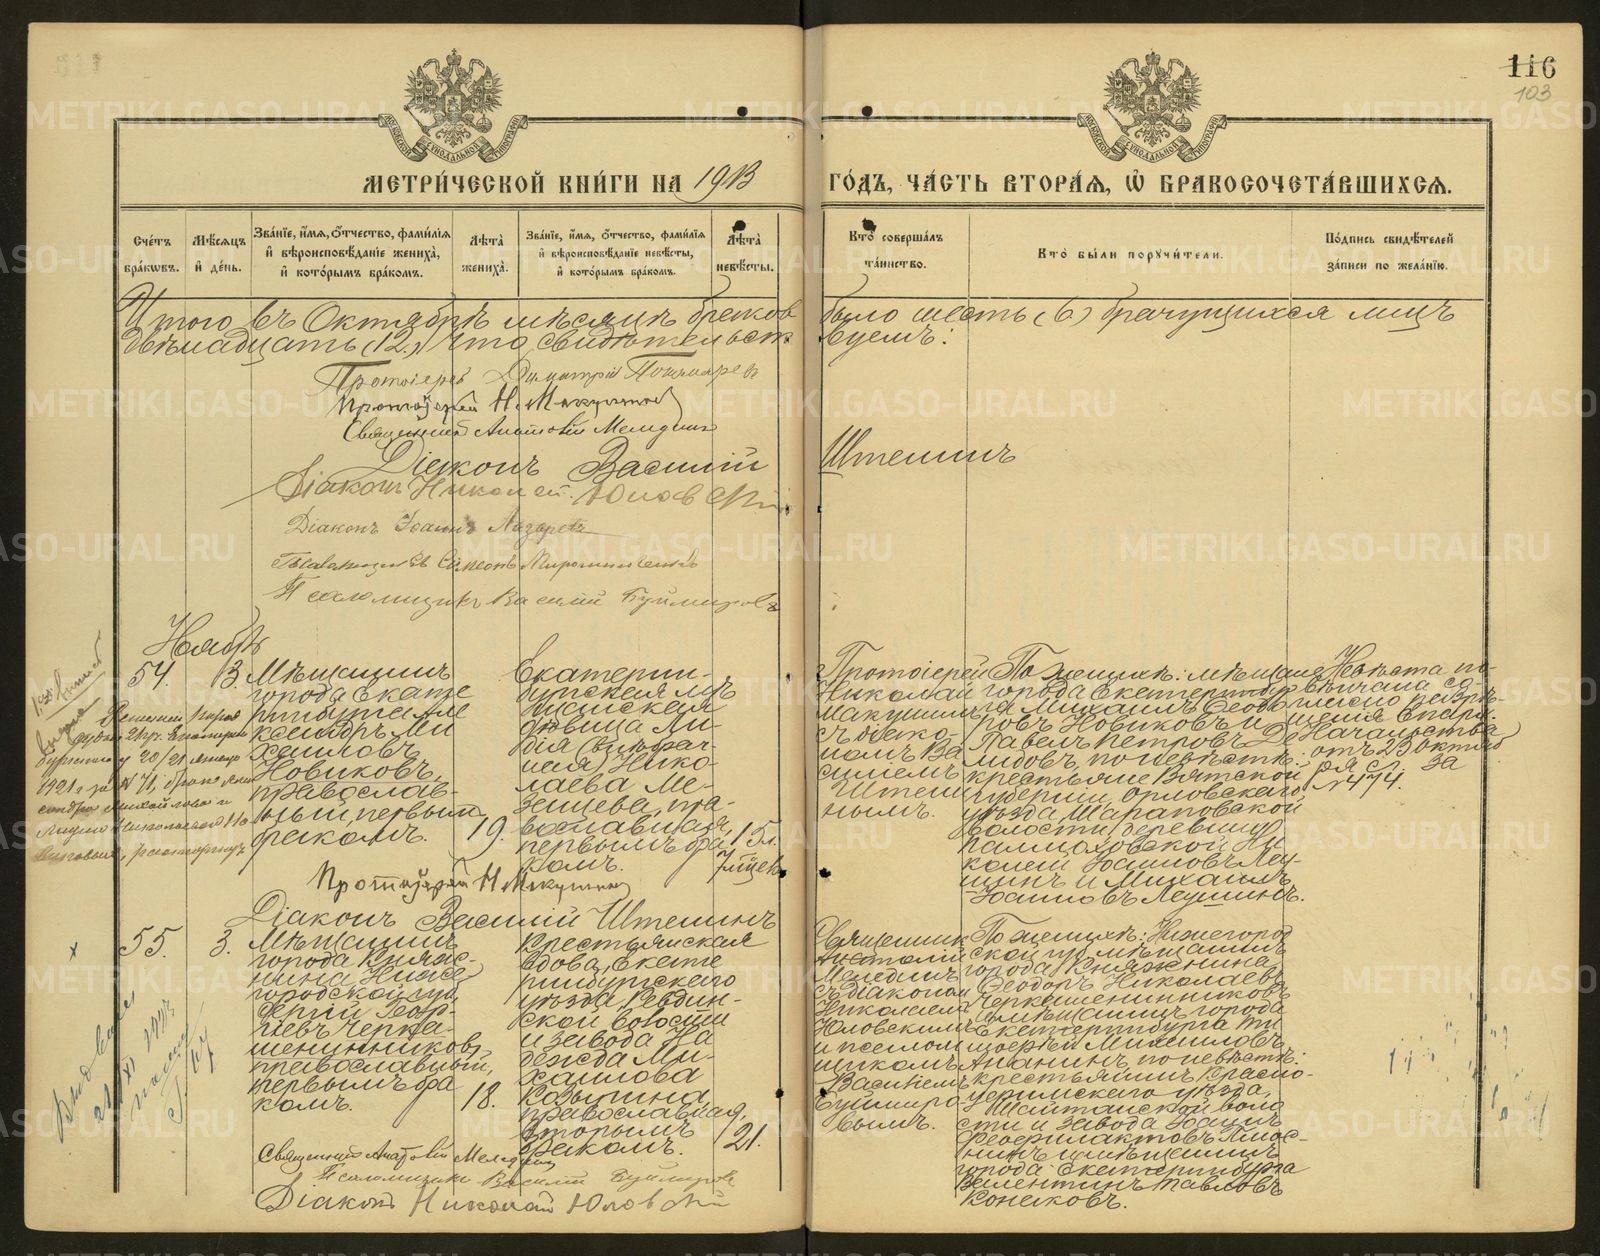 116
103
МЕТРИ́ЧЕСКОЙ КНИ́ГИ НА 1913 ГО́ДЪ, ЧА́СТЬ ВТОРА́Я, Ѽ БРАКОСОЧЕТА́ВШИХСЯ.
Сче́тъ бра́ковъ.
Мѣ́сяцъ и҆ де́нь.
Зва́нїе, и҆́мя, ѻ҆́тчество, фами́лїя и҆ вѣроисповѣ́данїе жениха̀, и҆ кото́рымъ бра́комъ.
Лѣ́та жениха̀.
Зва́нїе, и҆́мя, ѻ҆́тчество, фами́лїя и҆ вѣроисповѣ́данїе невѣ́сты, и҆ кото́рымъ бра́комъ.
Лѣ́та невѣ́сты.
Кто̀ соверша́лъ та́инство.
Кто̀ бы́ли поручи́тели.
По́дпись свидѣ́телей за́писи по жела́нїю.
Итого въ Октябрѣ мѣсяцѣ браковъ было шесть (6) брачущихся лицъ
двѣнадцать (12.) Что свидѣтельствуемъ:
Протоіерей Димитрій
Протоіерей Н. Макушинъ
Священникъ Анатолій Меледин
Діаконъ Василій Штенинъ
Діаконъ Николай Юловскій
Діаконъ Іоаннъ Лазаревъ
Псаломщикъ Симеонъ
Псаломщикъ Василій Буймировъ
Ноябрь
54.
3.
Мѣщанинъ
города Екате
ринбурга Але
ксандръ Ми
хаиловъ
Новиковъ,
православ-
ный, первымъ
бракомъ.
19.
Екатерин-
бургская мѣ
щанская
дѣвица Ли-
дія
Нико-
лаева Ме-
зенцева, пра-
вославная,
первымъ бра
комъ.
15 л.
7 мѣсяц.
Протоіерей
Николай
Макушинъ
съ діако-
номъ Ва
силіемъ
Штени
нымъ.
По женихѣ: мѣщане
города Екатеринбур
га Михаилъ Ѳеодо
ровъ Новиковъ и
Павелъ Петровъ Де
мидовъ, по невѣстѣ:
крестьяне Вятской
губерніи, Орловскаго
уѣзда, Шараповской
волости, деревни
Ни
колай Іоанновъ Леу-
шинъ и Михаилъ
Іоанновъ Леушинъ.
Невѣста по-
вѣнчана со-
гласно разрѣ-
шенія Епарх.
Начальства
отъ 23 октяб
ря с. г. за
№ 474.
Протоіерей Н. Макушинъ
Діаконъ Василій Штенинъ
55.
3.
Мѣщанинъ
города Княги-
нина Ниже
городской губ.
Сергій Геор-
гіевъ Черка-
шенинниковъ,
православный,
первымъ бра
комъ.
18.
Крестьянская
вдова, Екате
ринбургскаго
уѣзда Ревдин-
ской волости
и завода На
дежда Ми-
хаилова
православная,
вторымъ
бракомъ.
21.
Священникъ
Анатолій
Мелединъ
съ діакономъ
Николаемъ
Юловскимъ
и псалом
щикомъ
Василіемъ
Буймиро
вымъ.
По женихѣ: Нижегород
ской губ. мѣщанинъ
города Княгинина
Ѳеодоръ Николаевъ
Черкашенинниковъ
и мѣщанинъ города
Екатеринбурга Ти
моѳей Михаиловъ
Ананьинъ, по невѣстѣ:
крестьянинъ Красно-
уфимскаго уѣзда,
Шайтанской воло
сти и завода Іоаннъ
и мѣщанинъ
города Екатеринбурга
Валентинъ Павловъ
Конаковъ.
Священникъ Анатолій Мелединъ
Псаломщикъ Василій Буймировъ
Діаконъ Николай Юловскій